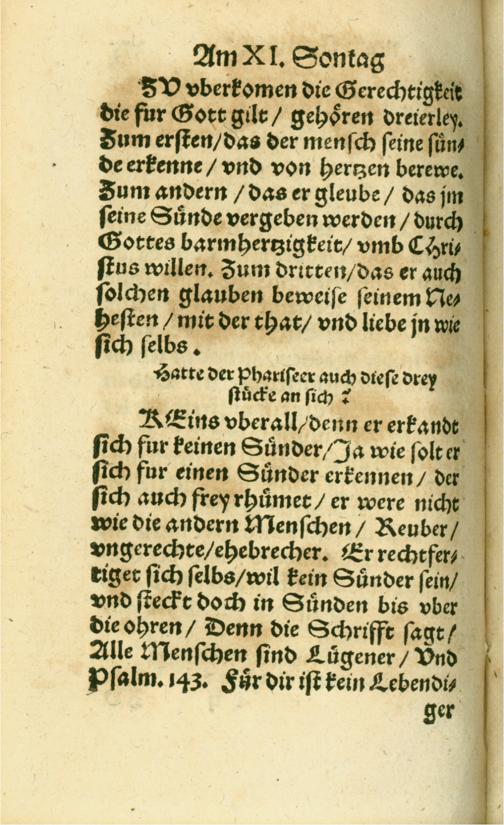 Am XI. Sontag
ZV vberkomen die Gerechtigkeit
die fur Gott gilt / gehören dreierley.
Zum ersten/das der mensch seine sün⸗
de erkenne / vnd von hertzen berewe.
Zum andern / das er gleube / das jm
seine Sünde vergeben werden / durch
Gottes barmhertzigkeit/ vmb CHri⸗
stus willen. Zum dritten/das er auch
solchen glauben beweise seinem Ne⸗
hesten / mit der that/ vnd liebe jn wie
sich selbs.
Hatte der Phariseer auch diese drey
stücke an sich?
KEins vberall/denn er erkandt
sich fur keinen Sünder/Ja wie solt er
sich fur einen Sünder erkennen / der
sich auch frey rhümet / er were nicht
wie die andern Menschen / Reuber/
vngerechte/ehebrecher. Er rechtfer⸗
tiget sich selbs/wil kein Sünder sein/
vnd steckt doch in Sünden bis vber
die ohren / Denn die Schrifft sagt/
Alle Menschen sind Lügener / Vnd
Psalm. 143. Für dir ist kein Lebendi⸗
ger